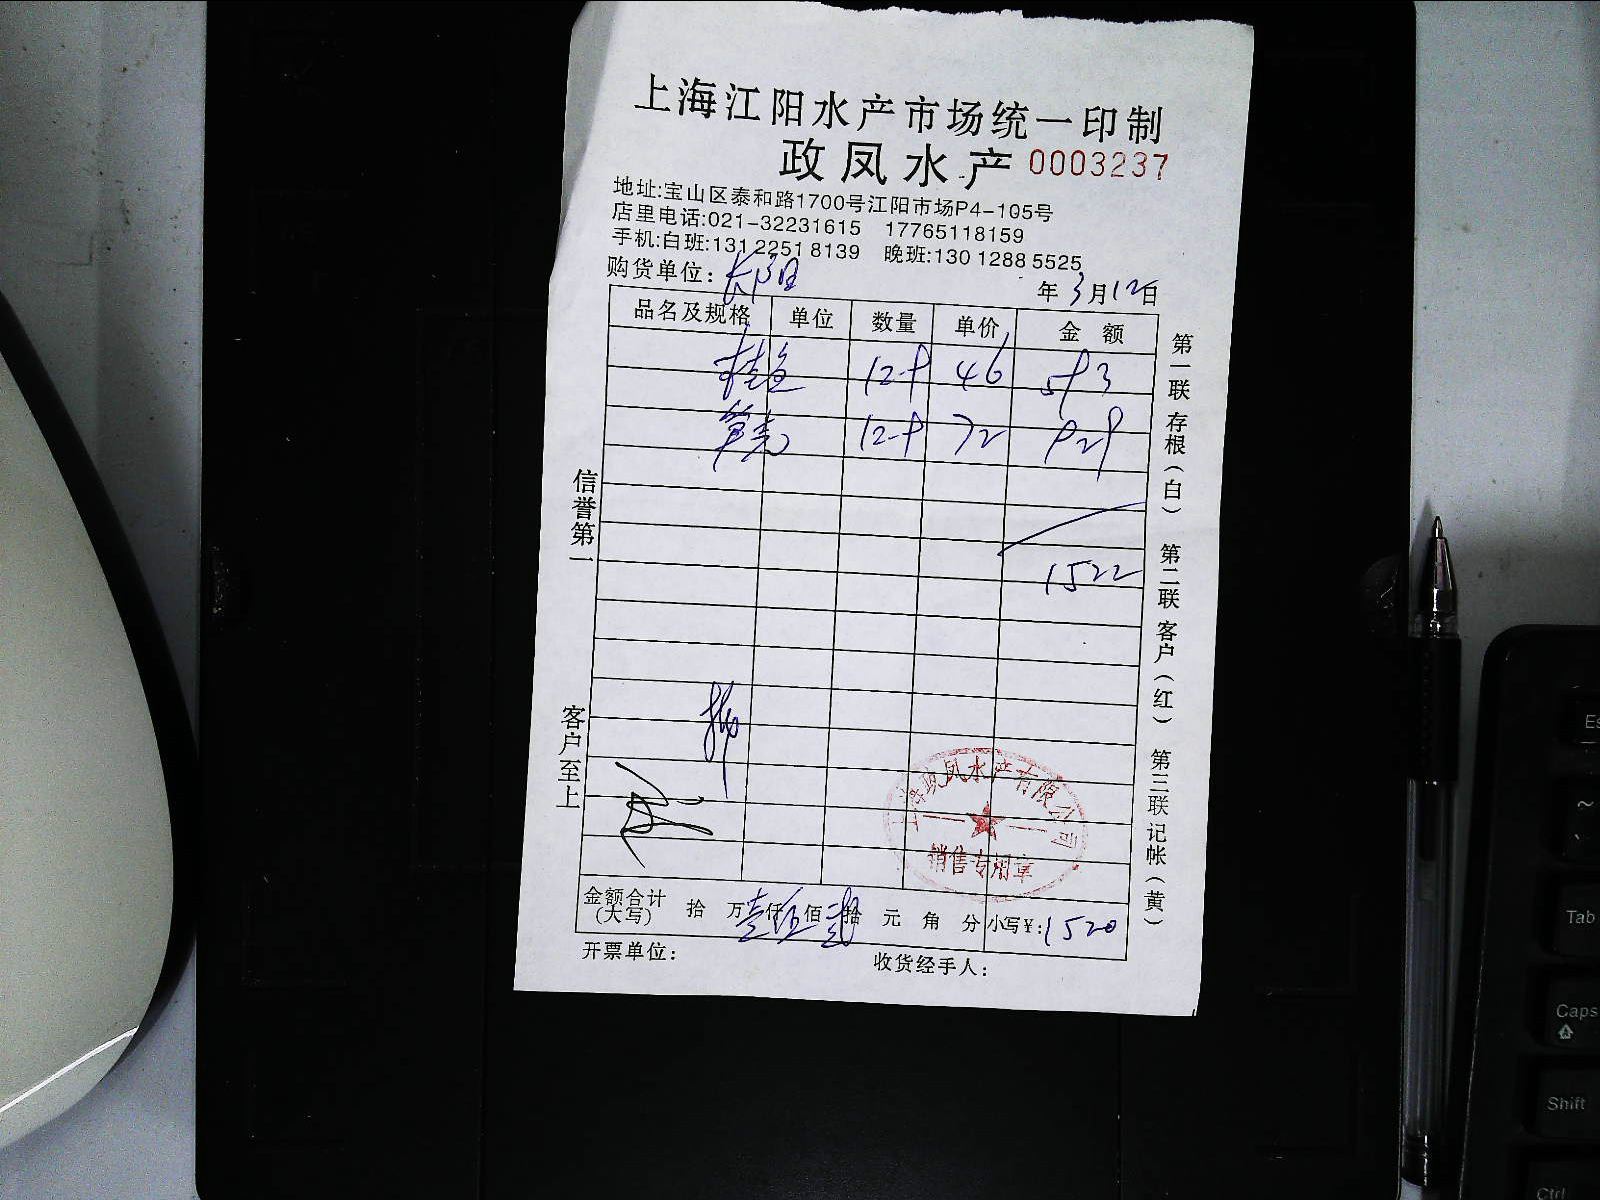 上海江阳水产市场统一印制
政凤水产 0003237
地址:宝山区泰和路1700号江阳市场P4-105号
店里电话:021-32231615 17765118159
手机:白班:131 2251 8139 晚班:130 1288 5525
购货单位: 长阳 年 3月12日
品名及规格 单位 数量 单价 金 额
桂鱼 12.9 46 593
12.9 72 929
1522
金额合计(大写) 拾 万 壹仟 伍佰 贰拾 元 角 分 小写¥:1520
开票单位: 收货经手人:
信誉第一
客户至上
第一联 存根(白) 第二联 客户(红) 第三联 记帐(黄)
上海政凤水产有限公司
销售专用章
Es
~
Tab
Caps
Shift
Ctrl